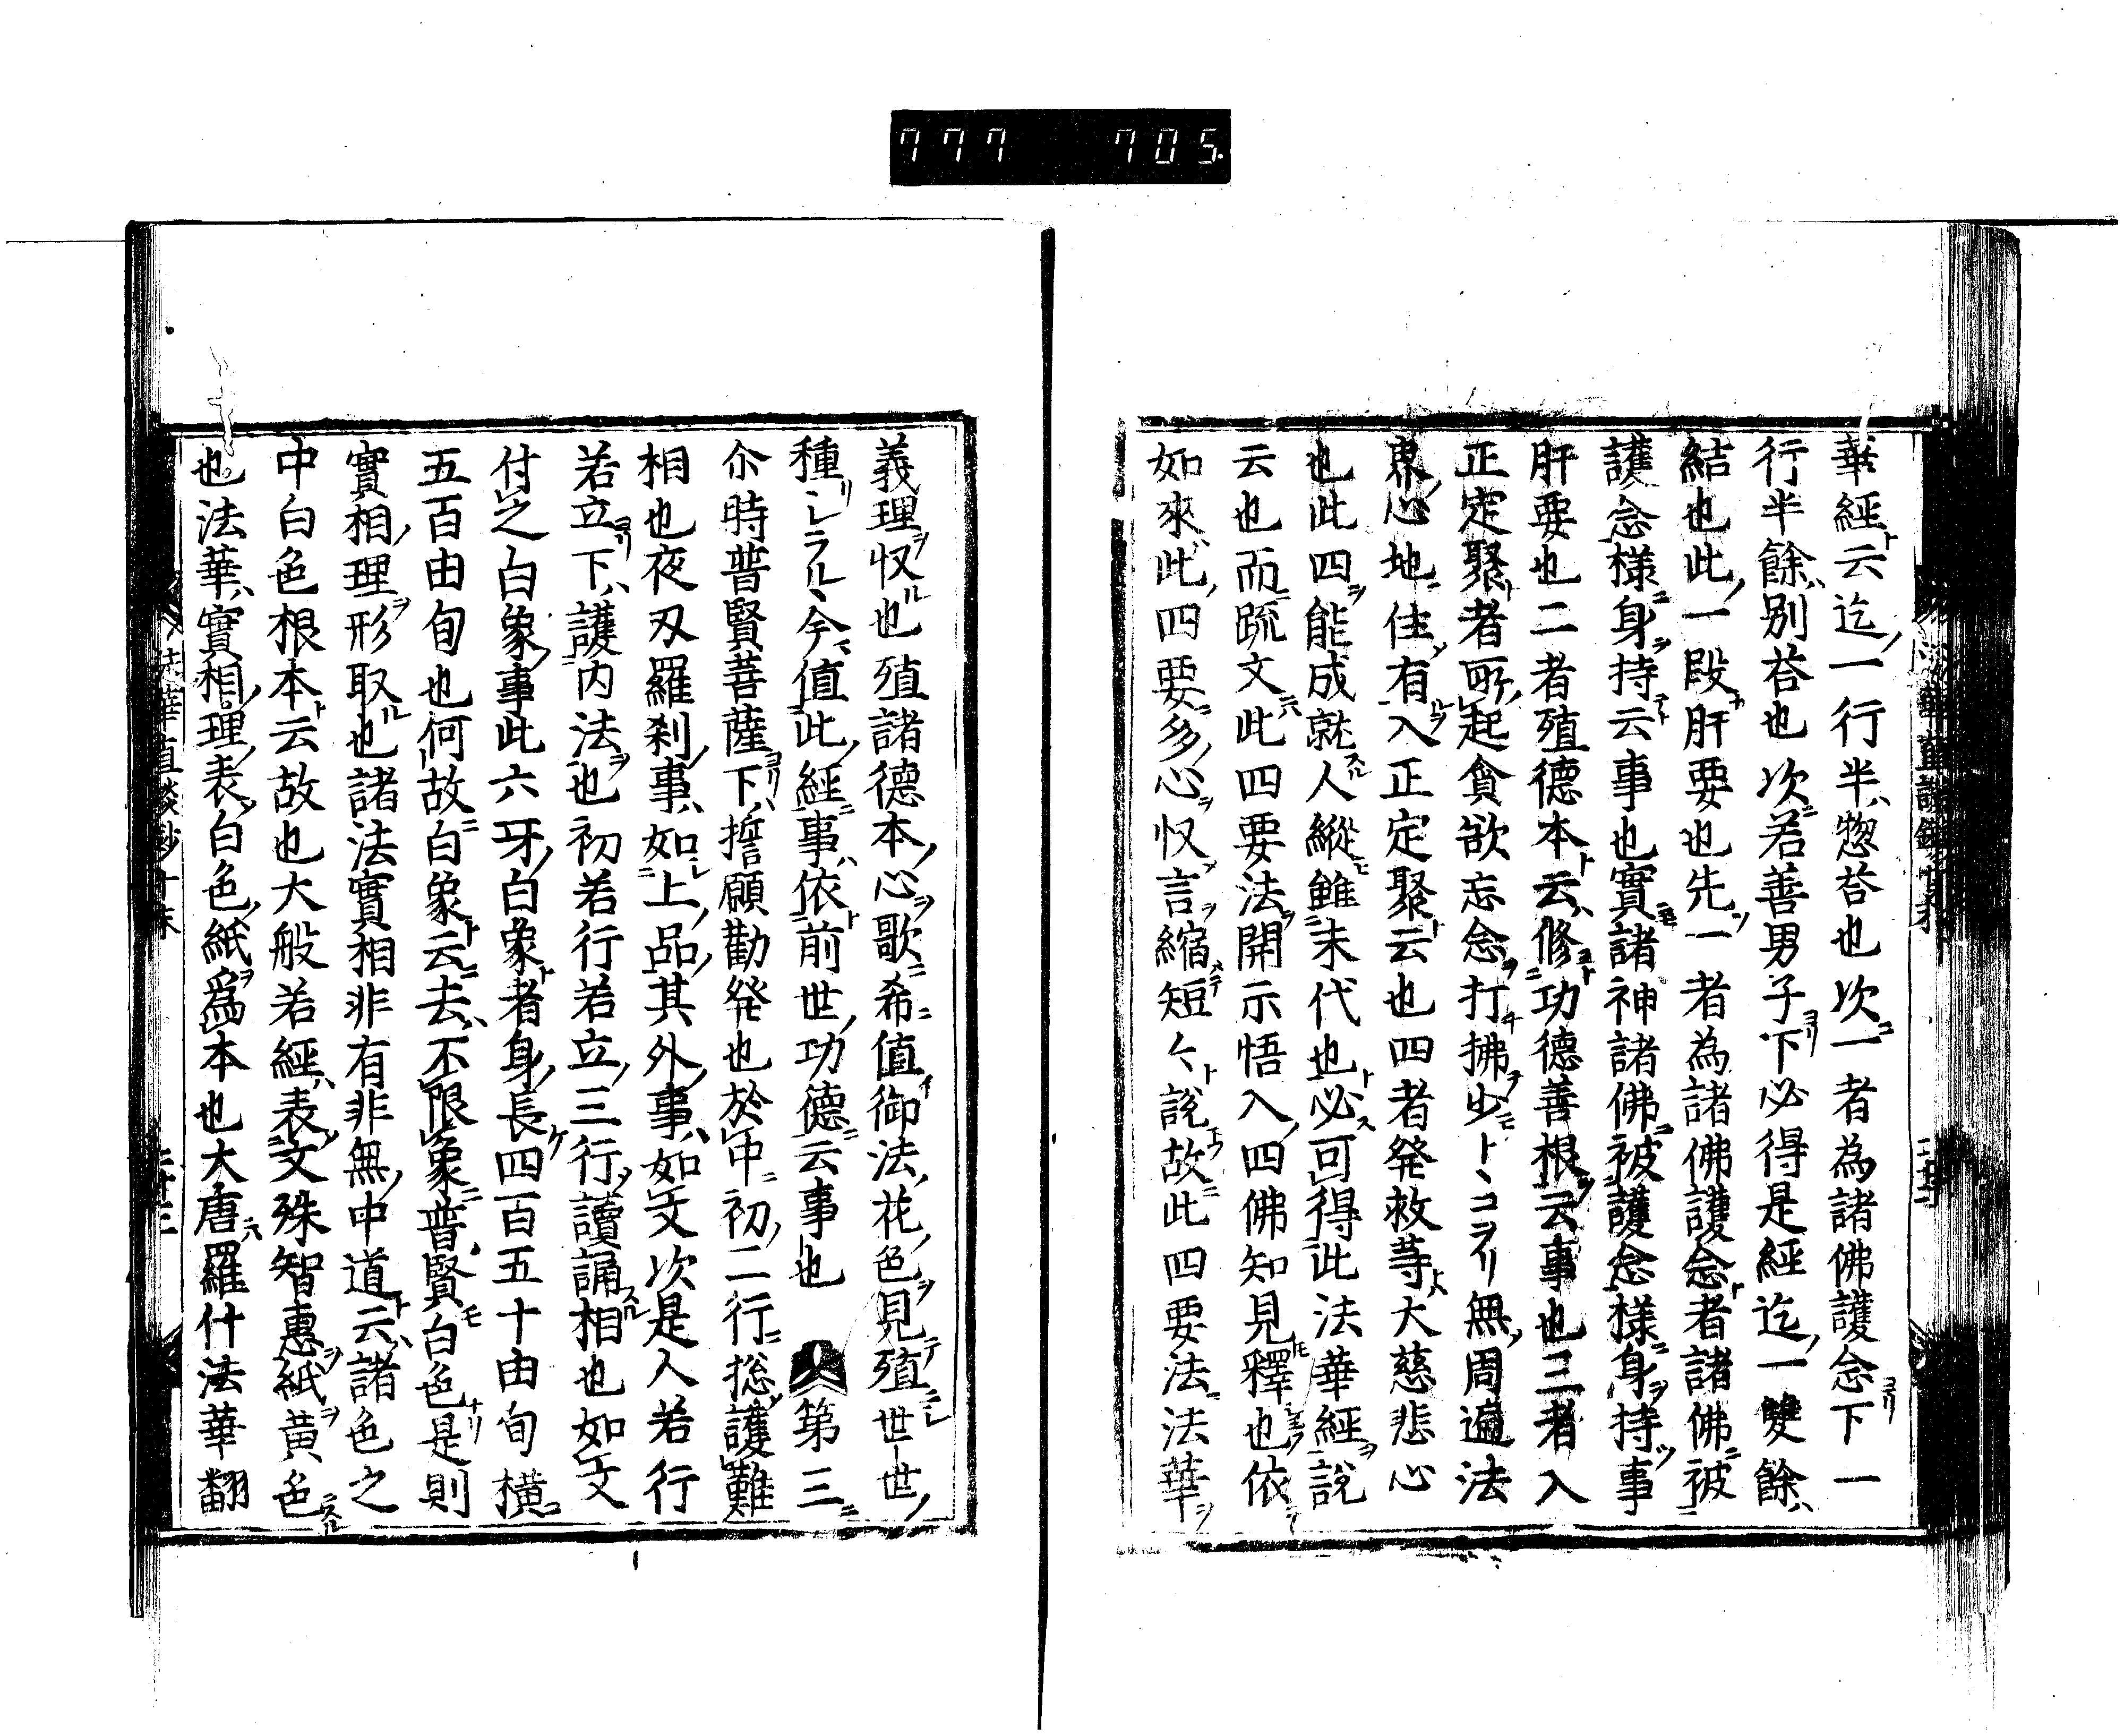 777 705.
華經ト云迄ノ一行半ハ惣荅也次ニ一者為諸佛護念ヨリ下一
行半餘ハ別荅也次ニ若善男子ヨリ下必得是經迄ノ一雙餘ハ
結也此ノ一段ナ肝要也先ツ一者為諸佛護念ト者諸佛ニ被
護念様ニ身ヲ持テト云事也實ニモ諸神諸佛ニ被護念様ニ身ヲ持ツ事
肝要也二者殖德本ト云ハ修コト功德善根ヲ云事也三者入
正定聚ト者所ノ起貪欲忘念ヲ打チ拂ヲ少ニトヽコヲリ無ノ周遍法
東ノ心地ニ住ノ有ルヲ入正定聚ト云也四者発救等ト大慈悲心
也此四ヲ能成就スル人縱ヒ雖末代也ト必ス可得此法華經ヲ説
云也而ニ䟽文ニハ此四要法ヲ開示悟入ノ四佛知見トモ釋也依テ
如來ハ此ノ四要ニ多ノ心ヲ収言ヲ縮メテ短々ト説玉フ故ニ此四要法ニ法華ヲ
義理ヲ収ル也殖諸德本ノ心ヲ歌ニ希ニ値御法ノ花ノ色ヲ見テ殖ニシ世世ノ
種リシラルヽ今ニ値此ノ經ニ事ハ依ト前世ノ功德ニ云事也 第三ニ
尒時普賢菩薩ヨリ下ハ誓願勸発也於中ニ初ノ二行ニ捴ノ護難
相也夜叉羅刹ノ事ハ如上ノ品ノ其外ノ事ハ如文次是人若行
若立ヨリ下ハ護内法ヲ也初若行若立ノ三行ヲ讀誦スル相也如文
付之白象ノ事此六牙ノ白象ト者身ノ長ケ四百五十由旬横ニ
五百由旬也何故ニ白象ト云ニ去ハ不限象ニ普賢モ白色ナリ是則
實相ノ理ヲ形取ル也諸法實相非有非無ノ中道ト云ハ諸色之
中白色根本ト云故也大般若經ハ表ノ文殊智惠ヲ紙ヲ黄色ニスル
也法華ハ實相ノ理ノ表ノ白色ノ紙ヲ爲本也大唐ニハ羅什法華翻
法華直談鈔十末